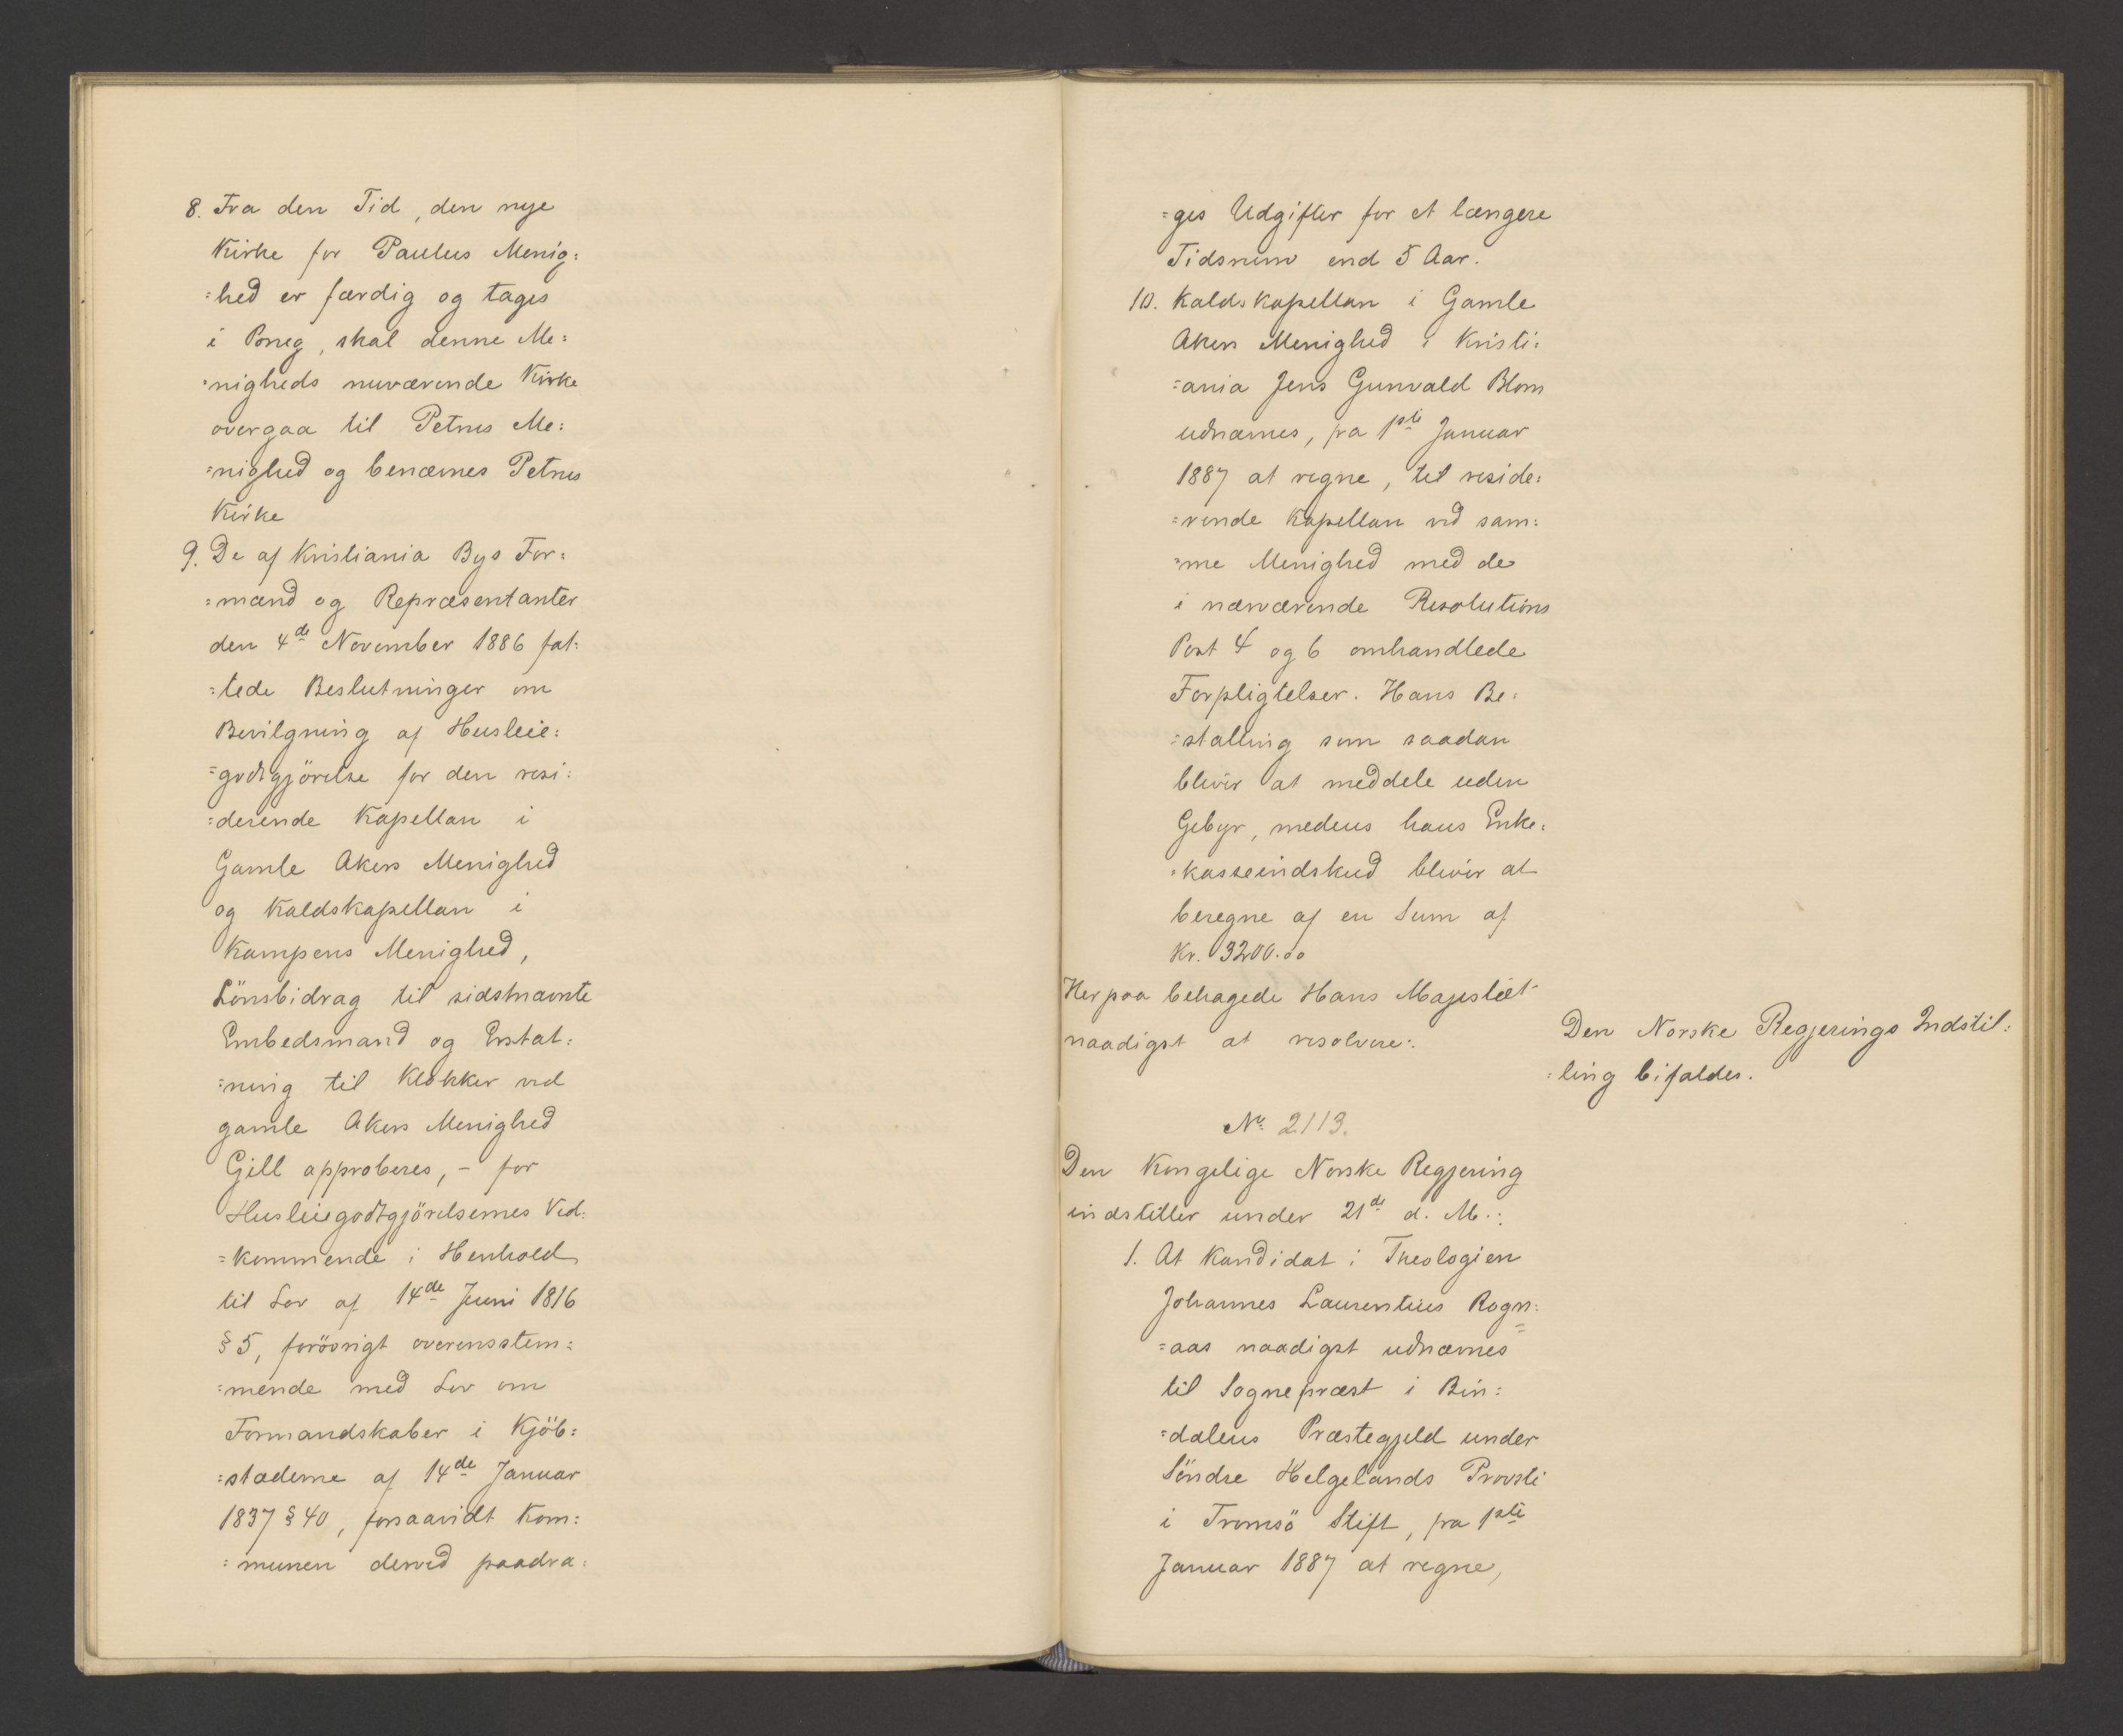 8. Fra den Tid, den nye
Kirke for Paulus Menig:
:hed er færdig og tages
i Brug, skal denne Me:
:nigheds nuværende Kirke
overgaa til Petrus Me:
:nighed og benævnes Petrus
Kirke
9. De af Kristiania Bys For:
:mænd og Repræsentanter
den 4de November 1886 fat:
:tede Beslutninger om
Bevilgning af Husleie:
:godtgjörelse for den resi:
:derende Kapellan i
Gamle Akers Menighed
og Kaldskapellan i
Kampens Menighed,
Lönsbidrag til sidstnævnte
Embedsmand og Erstat:
:ning til Klokker ved
gamle Akers Menighed
Gjell approberes, - for
Husleiegodtgjörelsernes Ved:
:kommende i Henhold
til Lov af 14de Juni 1816
§ 5, forövrigt overensstem:
:mende med Lov om
Formandskaber i Kjöb:
:stæderne af 14de Januar
1837 § 40, forsaavidt Kom:
:munen derved paadra:
:ges Udgifter for et længere
Tidsrum end 5 Aar.
10. Kaldskapellan i Gamle
Akers Menighed i Kristi:
:ania Jens Gunvald Blom
udnævnes, fra 1ste Januar
1887 at regne, til reside:
:rende Kapellan ved sam:
:me Menighed med de
i nærværende Resolutions
Post 4 og 6 omhandlede
Forpligtelser. Hans Be:
:stalling som saadan
blivir at meddele uden
Gebyr, medens hans Enke:
:kasseindskud blivir at
beregne af en Sum af
Kr. 3200.00
Herpaa behagede Hans Majestæt
naadigst at resolvere:
Den Norske Regjerings Indstil:
:ling bifaldes.
No. 2113.
Den Kongelige Norske Regjering
indstiller under 21de d. M.:
1. At Kandidat i Theologien
Johannes Laurentius Rogn:
:aas naadigst udnævnes
til Sognepræst i Bin:
:dalens Præstegjeld under
Söndre Helgelands Provsti
i Tromsö Stift, fra 1ste
Januar 1887 at regne,